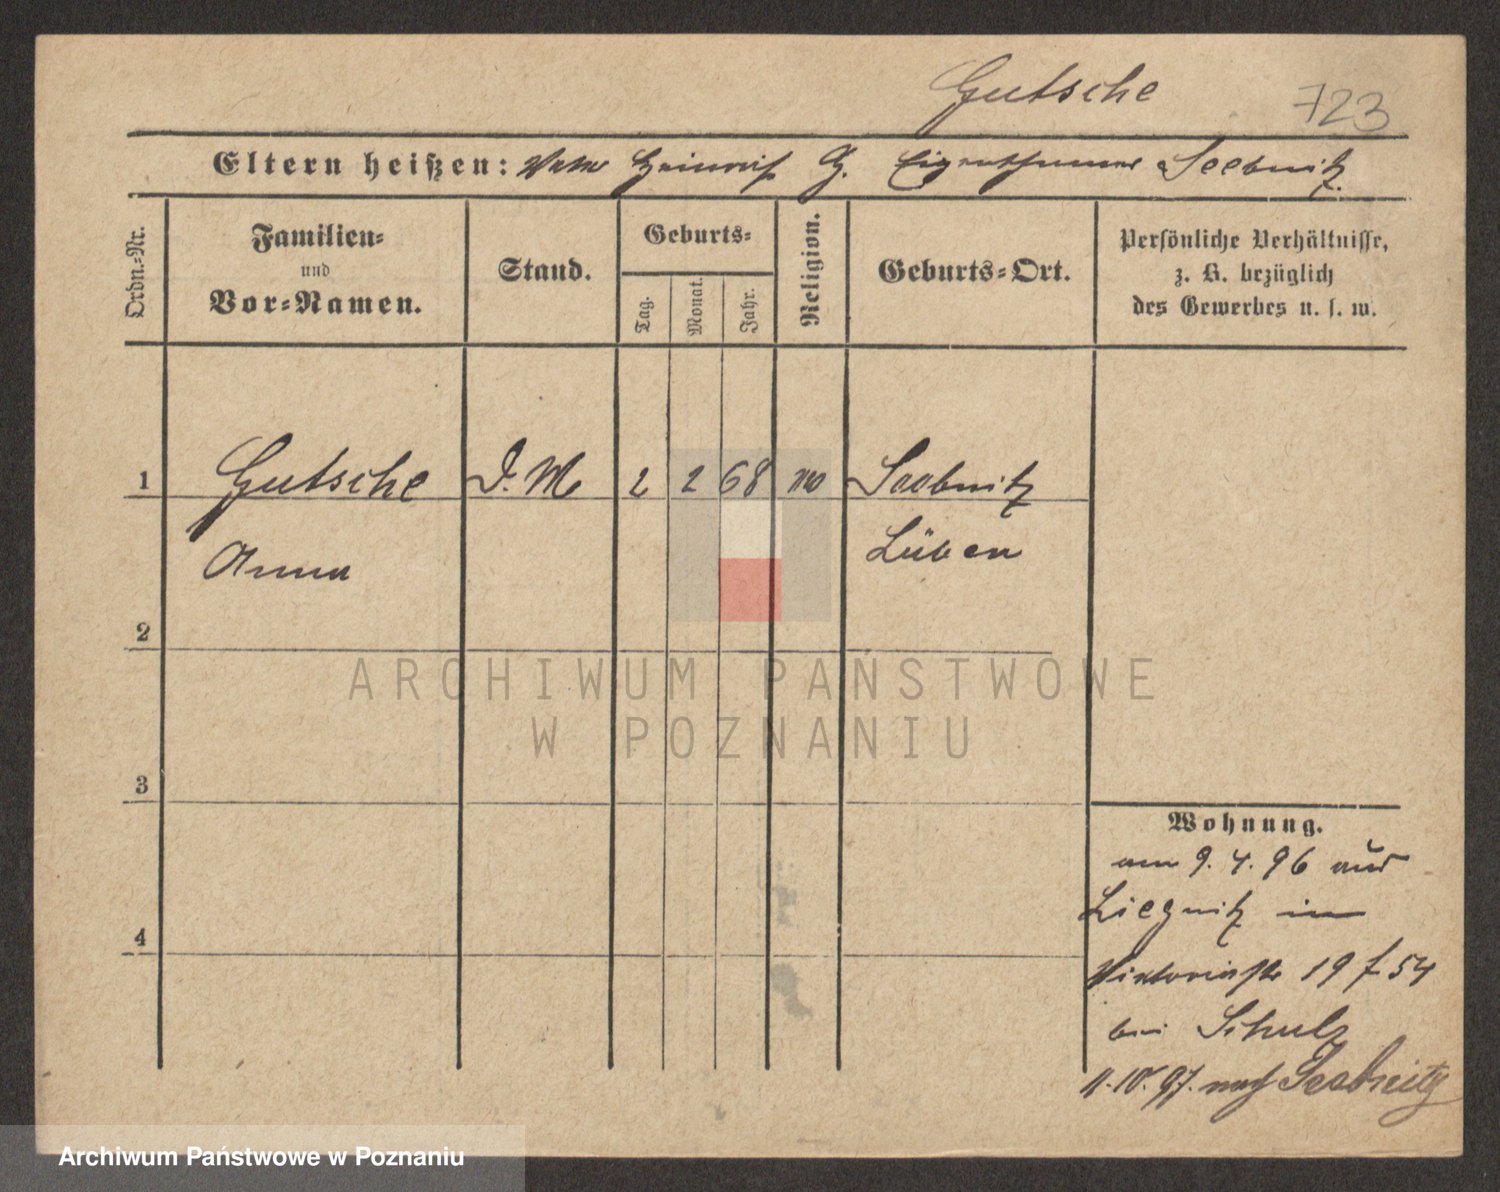 Gutsche 723
Eltern heißen: Vater Heinrich G. Eigenthümer Seebnitz
Ordn.-Nr.
Familien-
und
Vor-Namen.
Stand.
Geburts-
Tag.
Monat.
Jahr.
Religion.
Geburts-Ort.
Persönliche Verhältnisse,
z. B. bezüglich
des Gewerbes u. s. w.
1 Gutsche D. M 2 2 68 Seebnitz
Anna Lüben
2
3
4
Wohnung.
am 9. 4. 96 aus
Liegnitz in
Viktoriastr 19 f 54
bei Schulz
11.10.97. nach Seebnitz
ARCHIWUM PAŃSTWOWE
W POZNANIU
Archiwum Państwowe w Poznaniu